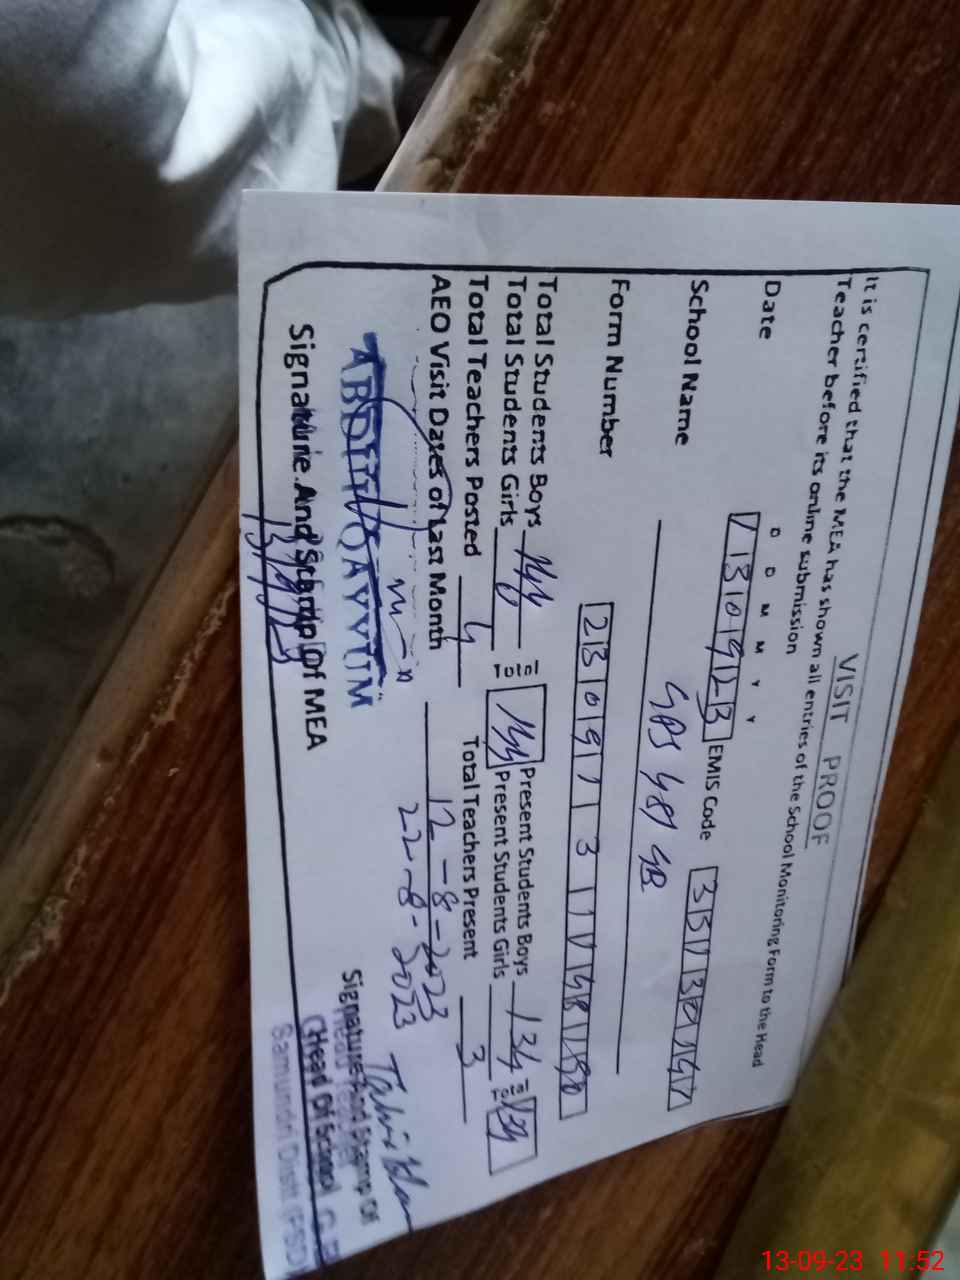 VISIT PROOF
It is certified that the MEA has shown all entries of the School Monitoring Form to the Head
Teacher before its online submission
D D M M Y Y
Date 130923 EMIS Code
School Name GPS 481 GB
Form Number
Total Students Boys 144 Present Students Boys 134
Total Students Girls 0 Total 144 Present Students Girls Total 134
Total Teachers Posted 4 Total Teachers Present 3
AEO Visit Dates of Last Month 12-8-2023
22-8-2023
ABDUL QAYYUM
Signature And Stamp Of MEA
13/9/23
Signature And Stamp Of
Head Of School
Samundri Distt (FSD)
13-09-23 11:52